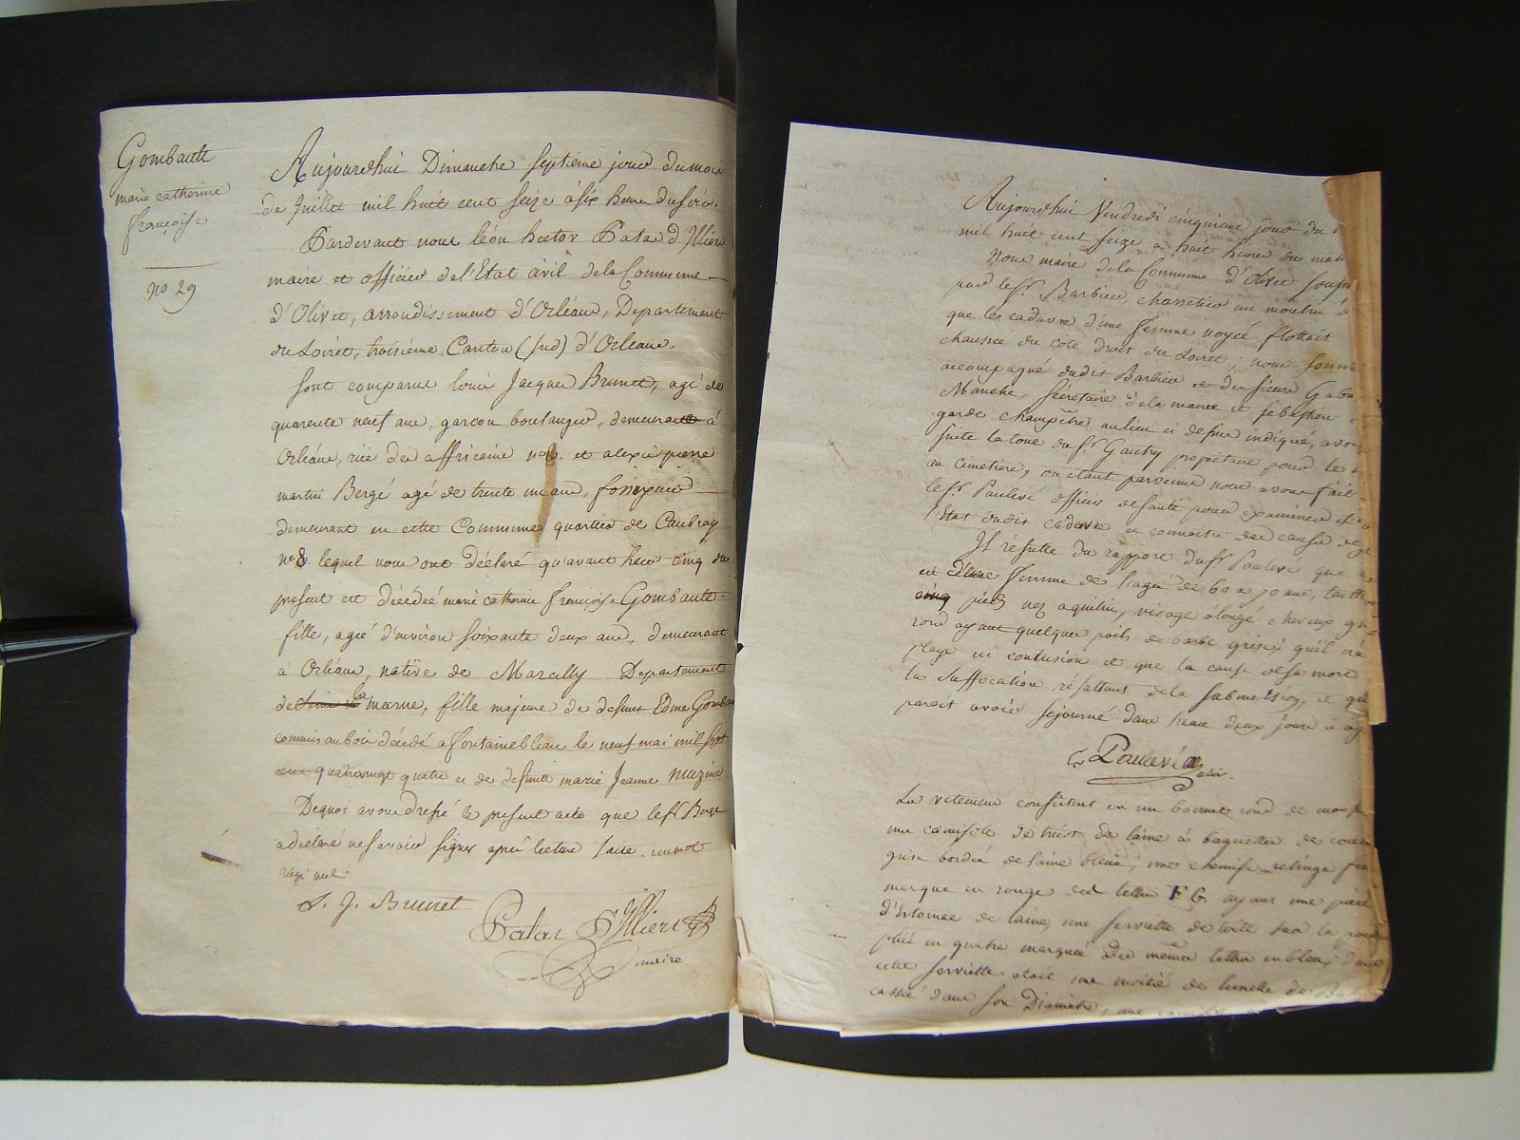 Gombault
marie catherine
françoise
no 29
Aujourdhui Dimanche septieme jour du mois
de Juillet mil huit cent seize à six heures du soir.
Pardevant nous léon hector Patas d'Illiers
maire et officier de l'Etat civil de la Commune
d'Olivet, arrondissement d'Orléans, Departement
du Loiret, troisième Canton (sud) d'Orleans.
sont comparus louis Jacques Brunet, agé de
quarente neuf ans, garçon boulanger, demeurant à
Orléans, rüe des affricains no 8. et alexis pierre
martin Bergé agé de trente un ans,
demeurant en cette Commune quartier de Caubray
no 8 lequel nous ont déclaré qu'avant hier cinq du
présent est décédée marie catherine françoise Gombault
fille, agée d'environ soixante deux ans, demeurant
à Orléans, native de Marcilly Departement
de la marne, fille majeure de defunt Edme Gombault
commis au bois décédé a fontainebleau le neuf mai mil sept
cent quatrevingt quatre et de defunte marie Jeanne
De quoi avons dressé le présent acte que le sr Bergé
a déclaré ne savoir signer après lecture faite. un mot
rayé nul.
L. J. Brunet
Patas D'Illiers
maire
Aujourdhui Vendredi cinquieme jour du
mil huit cent seize a huit heures du matin
Nous maire de la Commune d'Olivet
par le sr. Barbier, charretier au moulin
que le cadavre d'une femme noyée flottait
chaussée du coté droit du Loiret; nous sommes
accompagné dudit Barbier et du sieur
Manche, Sécrétaire de la mairie et
garde champêtre au lieu ci dessus indiqué, avons
suite la toue du sr. Gautry propriétaire pour le
au cimetière, ou étant parvenu nous avons fait
le sr. Paulevé officier de santé pour examiner
l'Etat dudit cadavre et connoitre des causes de
Il résulte du rapport du sr Paulevé que
est d'une femme de l'age de 60 a 70 ans, taille
cinq pieds nez aquilin, visage alongé cheveux gris
rond ayant quelques poils de barbe grise; qu'il n'a
playe ni contusion et que la cause de sa mort
la suffocation résultant de la submersion, et qu'
paroit avoir séjourné dans l'eau deux jours
Paulevé
Les vetemens consistent en un bonnet rond de
une camisole de tricot de laine à baguettes de couleur
grise bordée de laine bleue; une chemise
marque en rouge des lettres F G. ayant une pièce
d'estomac de laine, une serviette de toile sur la
pliée en quatre marquée des mêmes lettres en bleu; dans
cette serviette etait une moitié de lunette de
cassé dans son Diamètre, une